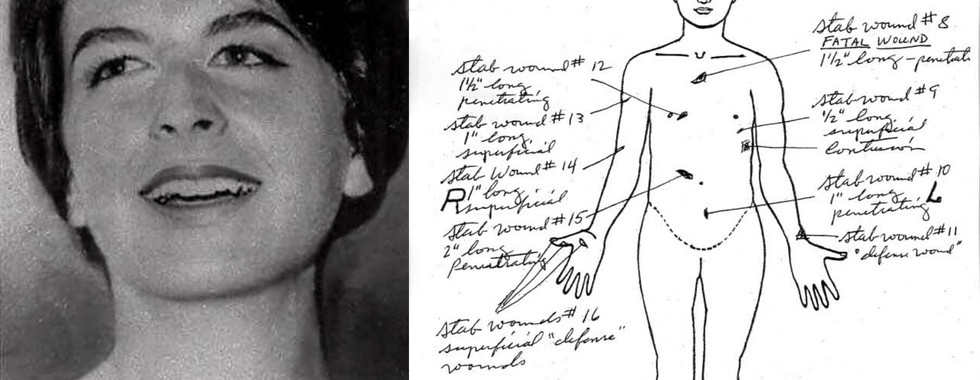 Stab wound # 8
FATAL WOUND
1½" long - penetrati
Stab wound # 12
1½" long
penetrating
Stab wound # 9
½" long
superficial
Contusion
Stab wound # 13
1" long
superficial
Stab Wound # 14
1" long
superficial
R
Stab wound # 10
1" long
penetrating
L
Stab wound # 15
2" long
Penetrating
Stab wound # 11
"defense wound"
Stab wounds # 16
superficial "defense"
wounds